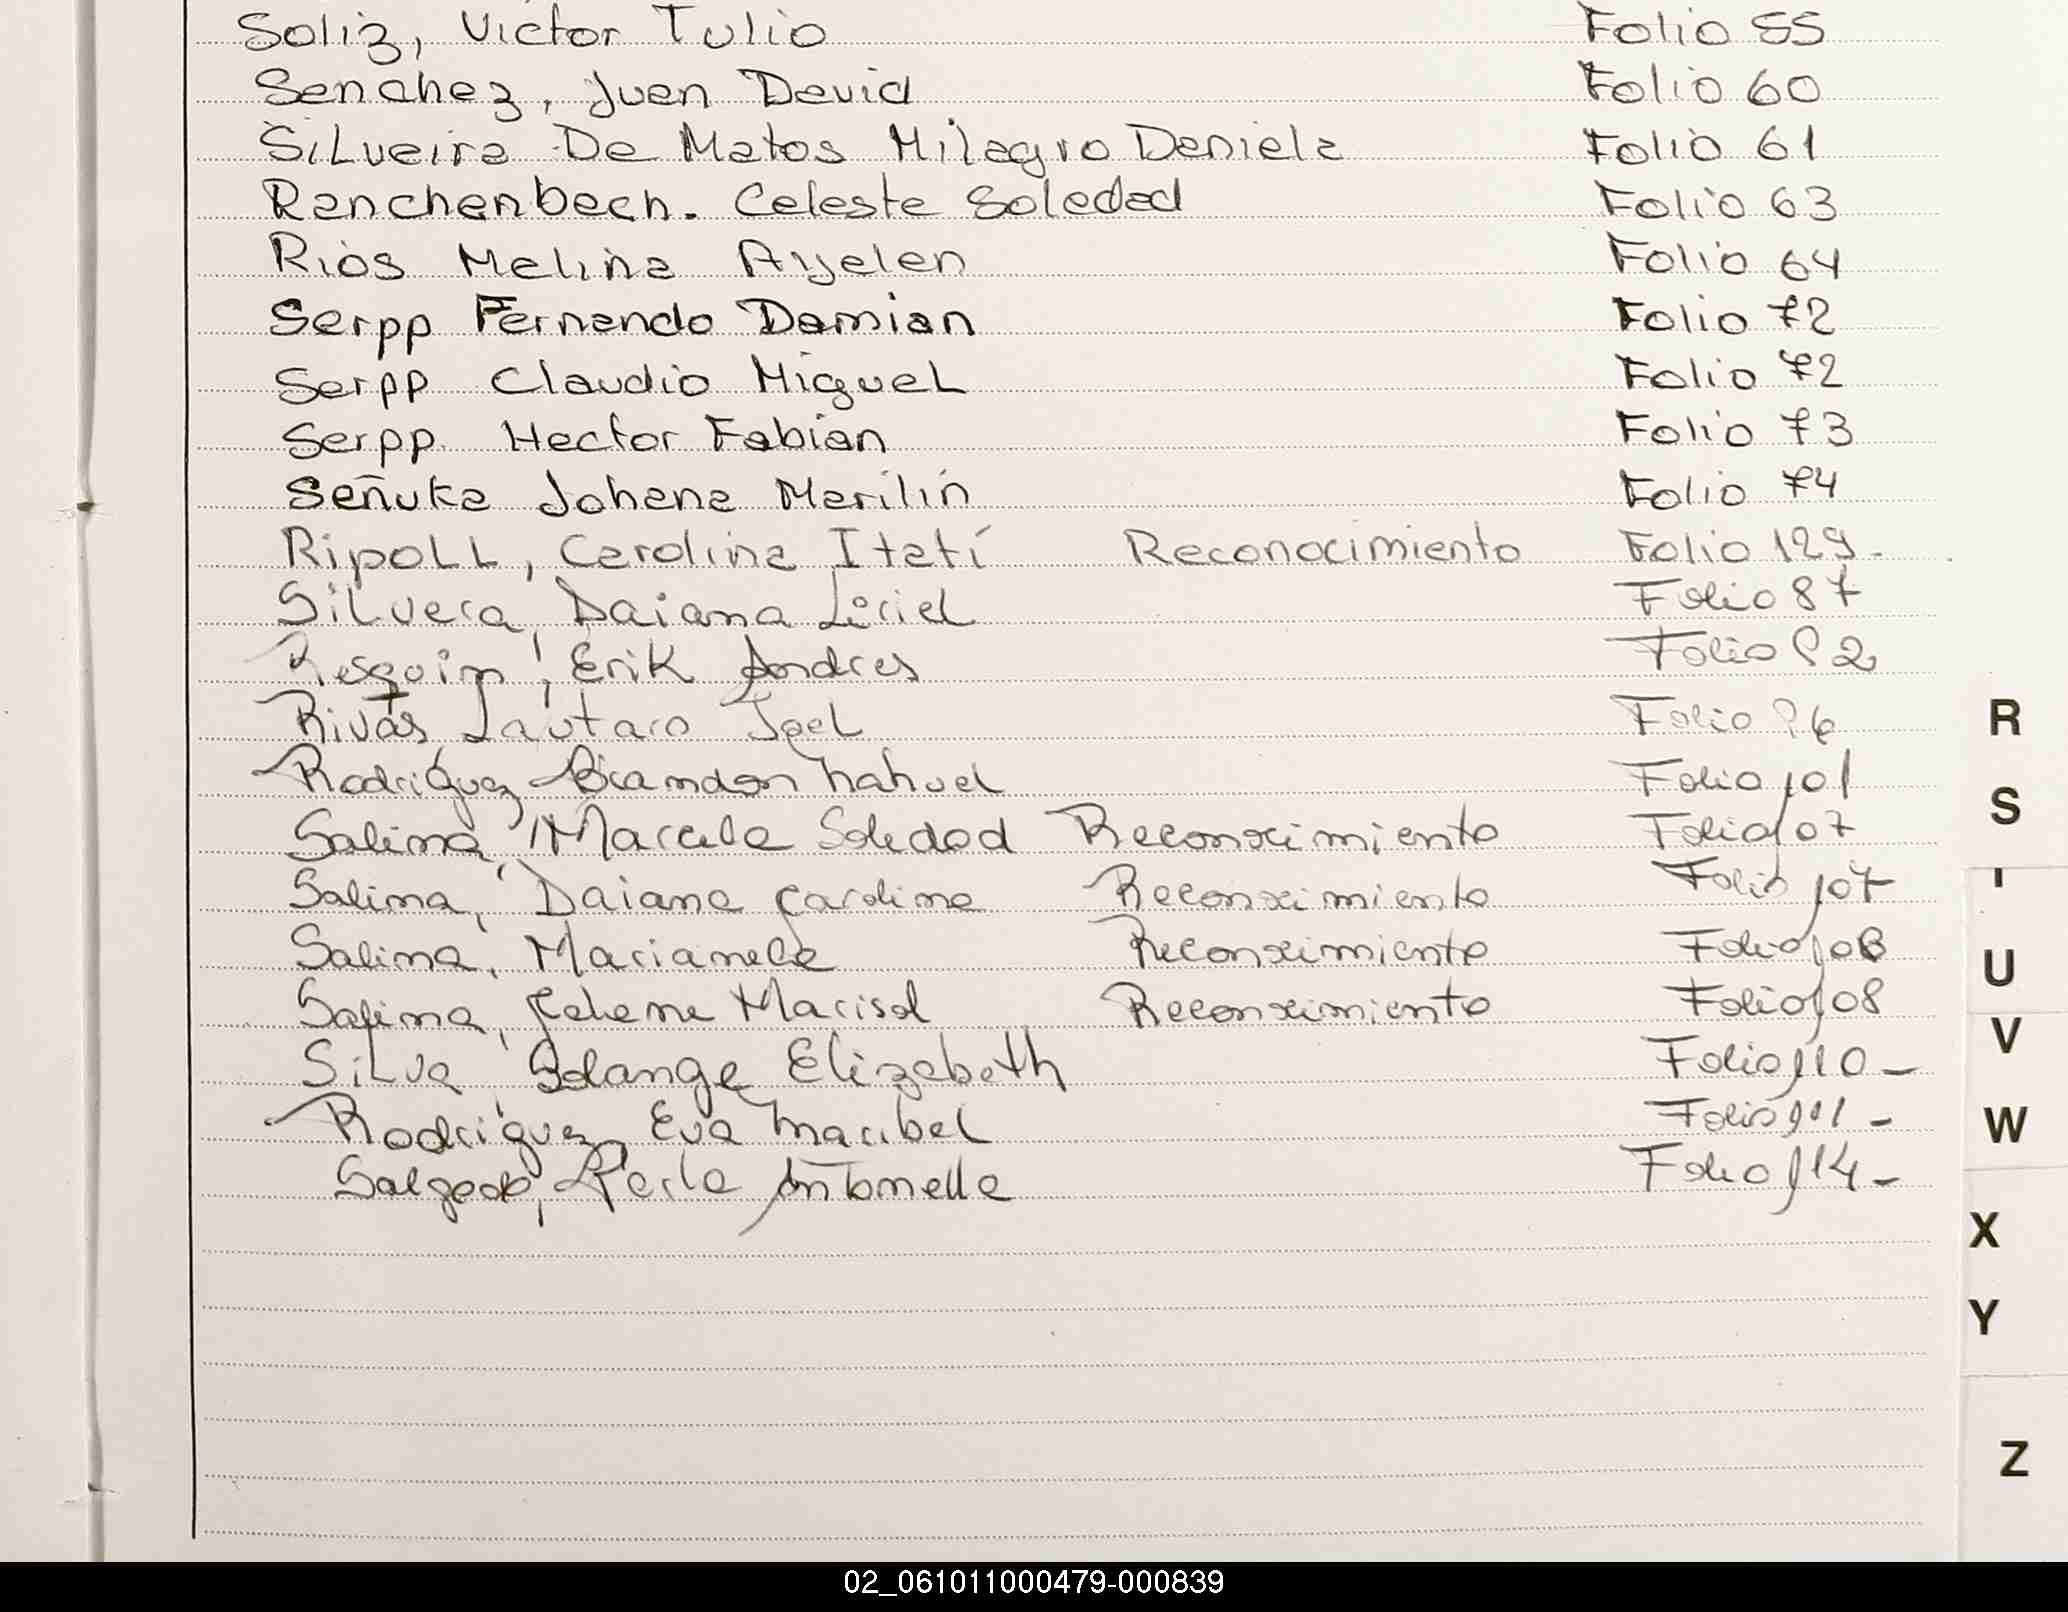 Soliz, Victor Tulio Folio 55
Sanchez, Juan David Folio 60
SiLveira De Matos Milagro Daniela Folio 61
Ranchenbech. Celeste Soledad Folio 63
Rios Melina Ayelen Folio 64
Serpp Fernando Damian Folio 72
Serpp Claudio MigueL Folio 72
Serpp. Hector Fabian Folio 73
Señuka Johana Marilin Folio 74
RipoLL, Carolina Itatí Reconocimiento Folio 129.
SiLvera, Daiana Liriel Folio 87
Resquin, Erik Andres Folio 92
Rivas Lautaro Joel Folio 96
Rodriguez Brandon Nahuel Folio 101
Salina, Marcela Soledad Reconocimiento Folio 107
Salina, Daiana Carolina Reconocimiento Folio 107
Salina, Marianela Reconocimiento Folio 108
Salina, Johana Marisol Reconocimiento Folio 108
SiLva, Solange Elizabeth Folio 110 -
Rodriguez, Eva Maribel Folio 111 -
Salgado, Perla Antonella Folio 114 -
R
S
U
V
W
X
Y
Z
02_061011000479-000839